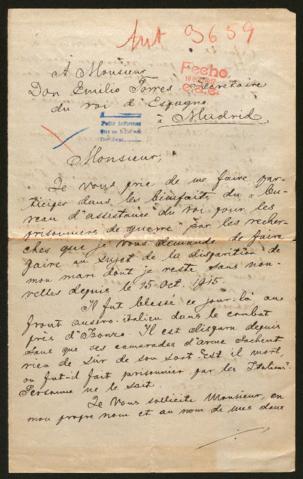 Aut 3659
A Monsieur
Don Emilio Torres, Secrétaire
du roi d'Espagne
à Madrid
Fecho
Monsieur,
Je Vous prie de me faire par-
ticiper dans les bienfaits du Bu-
reau d'assistance du roi pour les
prisonniers de guerre par les recher-
ches que je Vous demande de faire
faire au sujet de la disparition de
mon mari dont je reste sans nou-
velles depuis le 15 Oct. 1915.
Il fut blessé ce jour-là au
front austro-italien dans le combat
près d'Isonzo. Il est disparu depuis
sans que ses camarades d'arme sachent
rien de sûr de son sort. Est-il mort
ou fut-il fait prisonnier par les Italiens?
Personne ne le sait.
Je Vous sollicite Monsieur, en
mon propre nom et au nom de mes deux